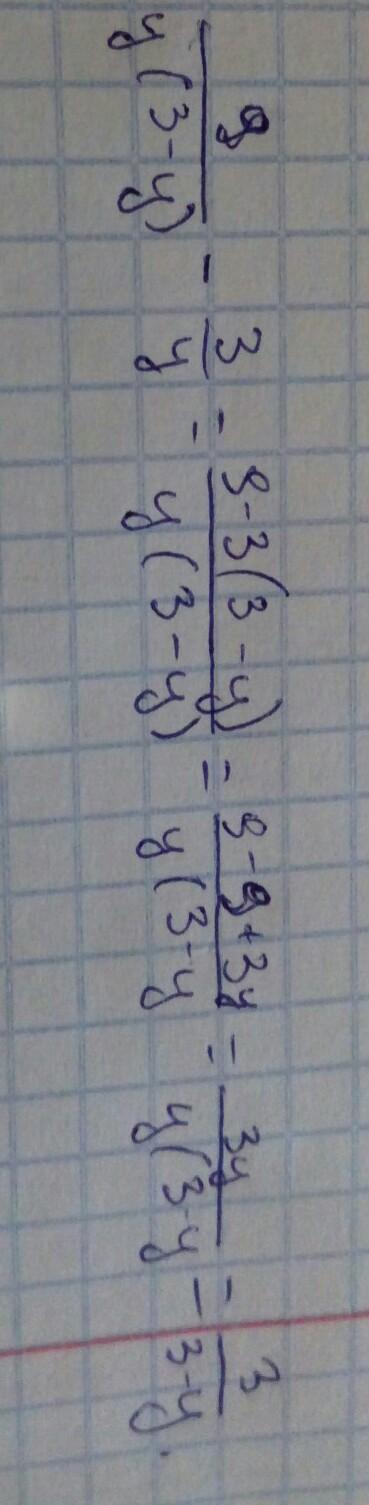 9/(y(3-y)) - 3/y = (9-3(3-y))/(y(3-y)) = (9-9+3y)/(y(3-y) = 3y/(y(3-y) = 3/(3-y).